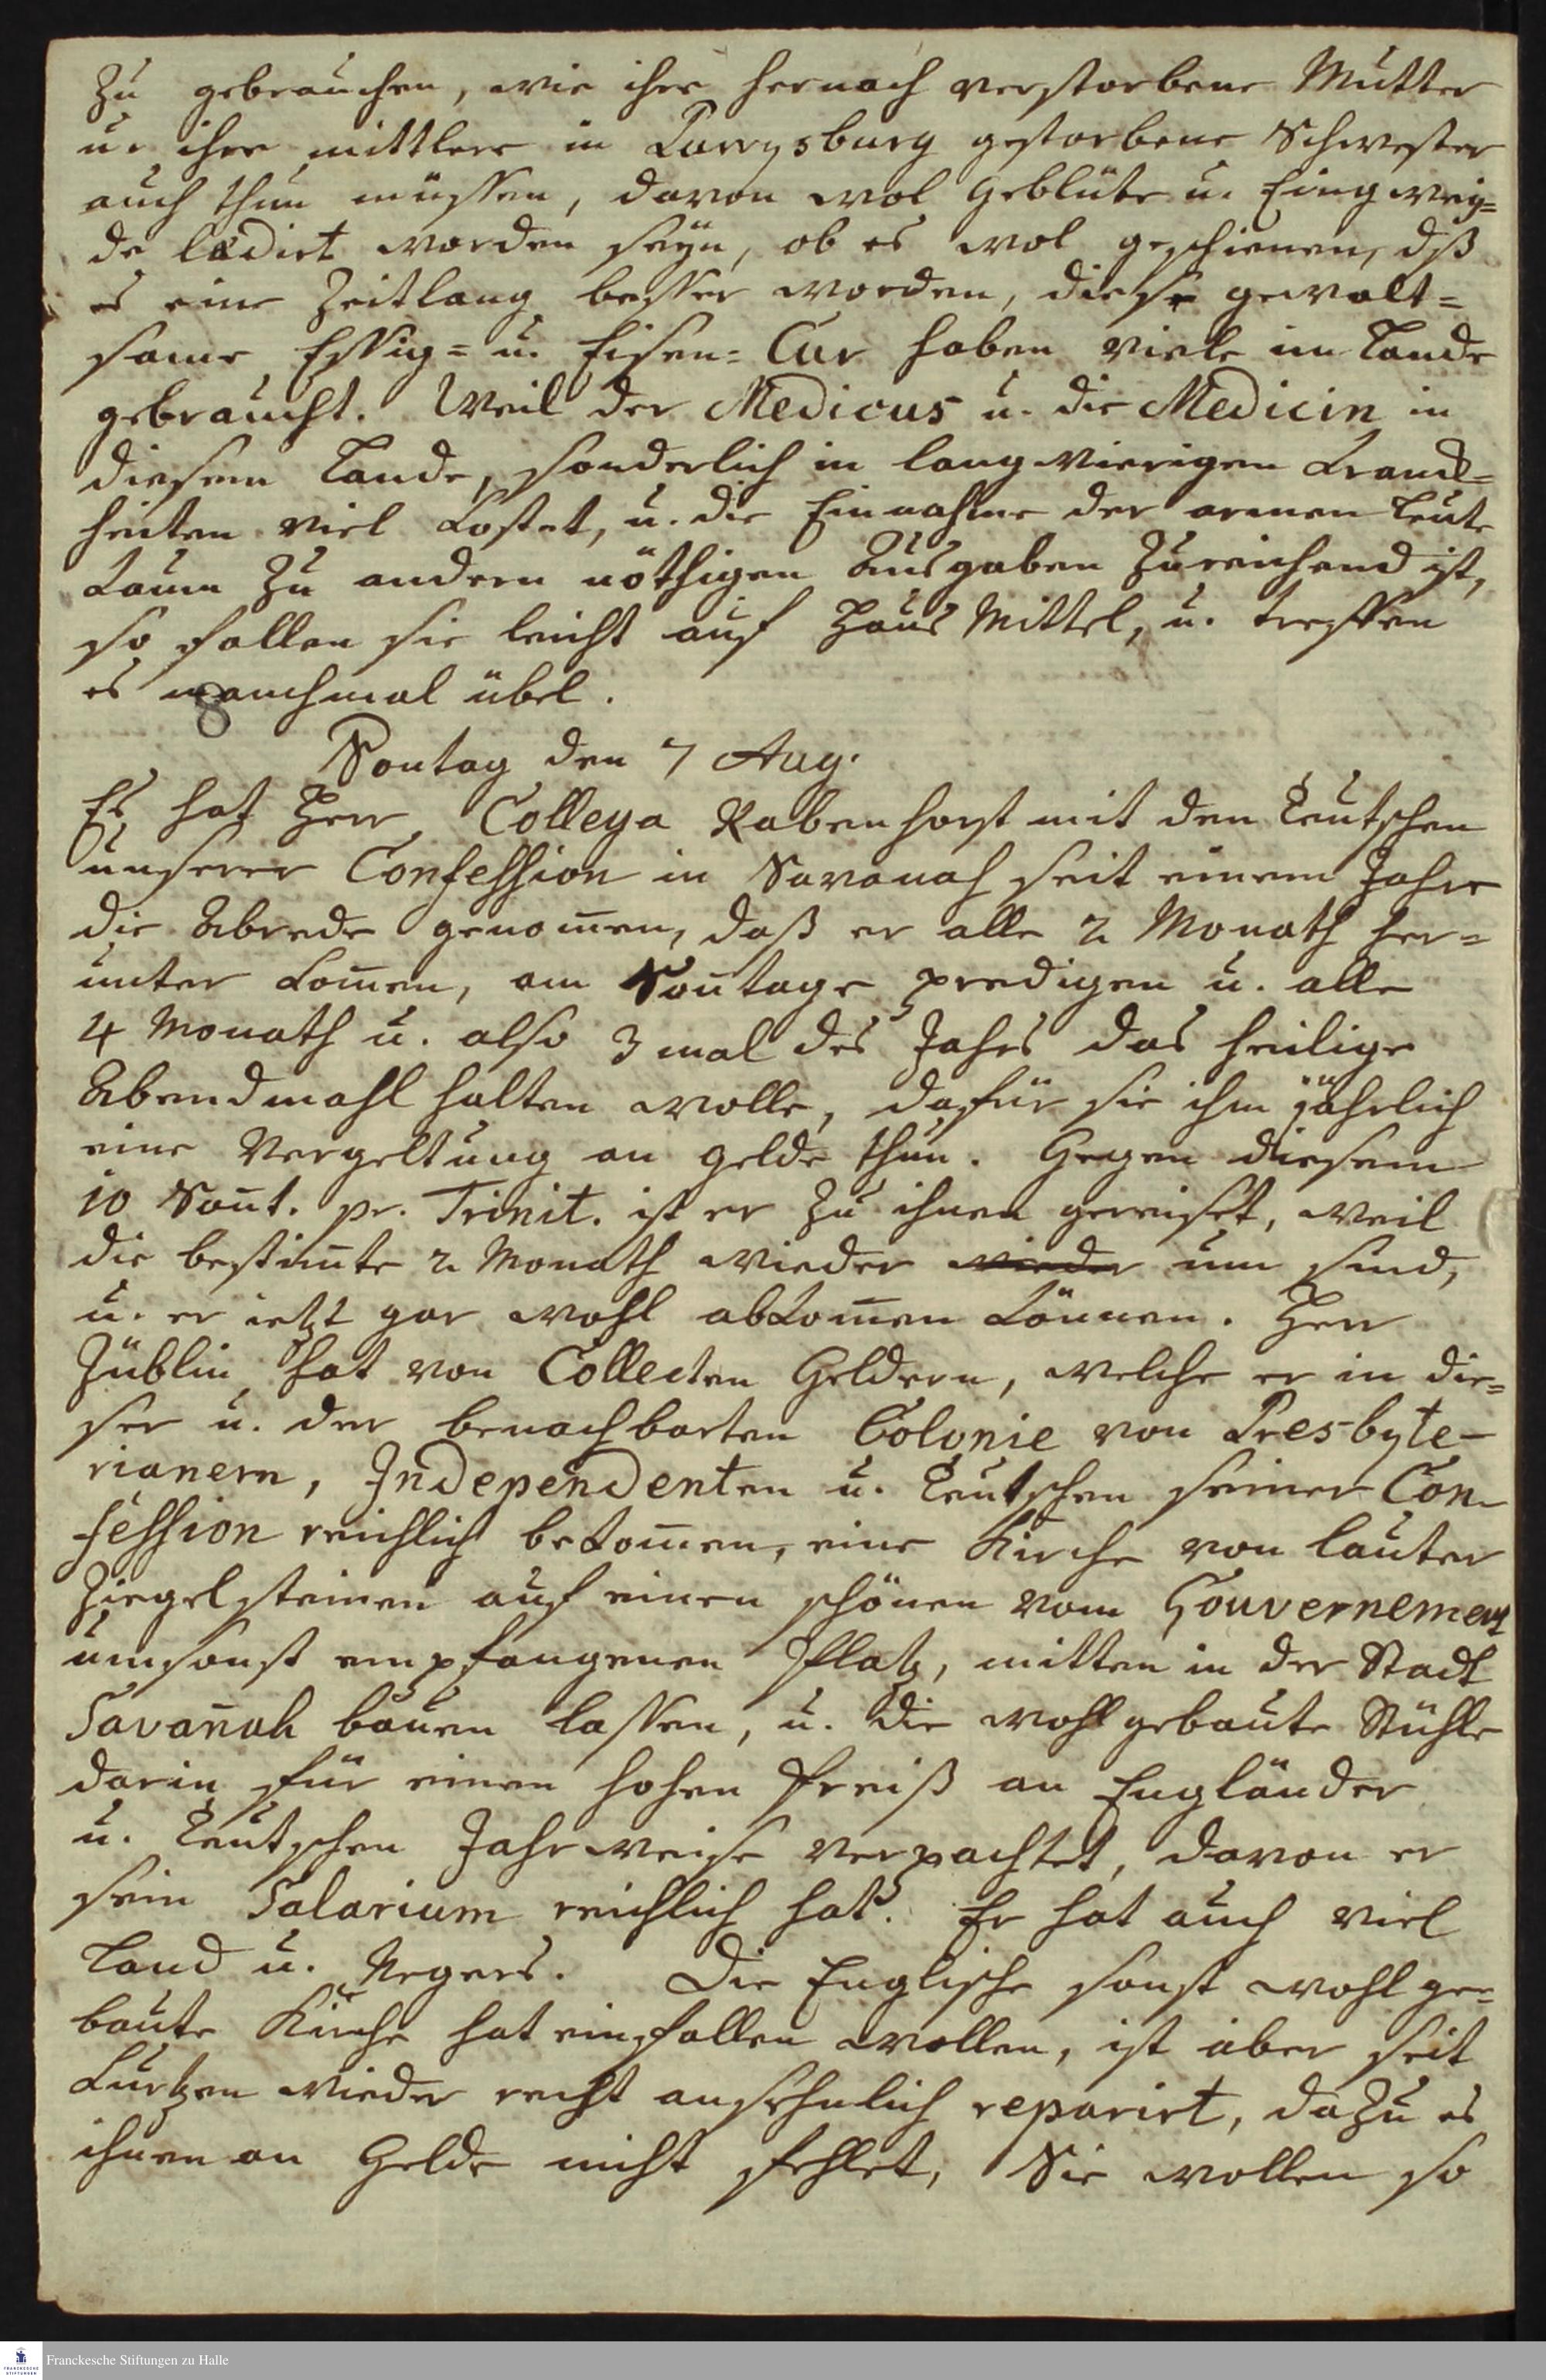 zu gebrauchen, wie ihre hernach verstorbene Mutter
u. ihre mittlere in Purrysburg gestorbene Schwester
auch thun müssen, davon wol Geblüte u. Eingewey=
de lædirt worden seyn, ob es wol geschienen, dß
es eine Zeitlang besser worden, diese gewalt=
same Essig= u. Eisen= Cur haben viele im Lande
gebraucht. Weil der Medicus u. die Medicin in
diesem Lande, sonderlich in langwierigen Kranck=
heiten viel kostet, u. die Einnahme der armen Leute
kaum zu andern nöthigen Ausgaben zureichend ist,
so fallen sie leicht auf Haus Mittel, u. treffen
es manchmal übel.
8
Sontag den 7 Aug.
Es hat Herr Collega Rabenhorst mit den Teutschen
unserer Confession in Savanah seit einem Jahre
die Abrede genom̄en, daß er alle 2 Monath her=
unter kom̄en, am Son̄tage predigen u. alle
4 Monath u. also 3 mal des Jahrs das heilige
Abendmahl halten wolle, dafür sie ihm jährlich
eine Vergeltung an Gelde thun. Gegen diesem
10 Son̄t. pr. Trinit. ist er zu ihnen gereiset, weil
die bestim̄te 2 Monath wieder wieder um sind,
u. er ietzt gar wohl abkom̄en können. Herr
Züblin hat von Collecten Geldern, welche er in die=
ser u. der benachbarten Colonie von Presbyte-
rianern, Independenten u. Teutschen seiner Con-
fession reichlich bekom̄en, eine Kirche von lauter
Ziegelsteinen auf einen schönen vom Gouvernement
umsonst empfangenen Platz, mitten in der Stadt
Savan̄ah bauen lassen, u. die wohlgebaute Stühle
darin für einen hohen Preiß an Engländer
u. Teutschen Jahrweise verpachtet, davon er
sein Salarium reichlich hat. Er hat auch viel
Land u. Negers. Die Englische sonst wohl ge=
baute Kirche hat einfallen wollen, ist aber seit
kurtzen wieder recht ansehnlich reparirt, dazu es
ihnen an Gelde nicht fehlet, Sie wollen so
Franckesche Stiftungen zu Halle